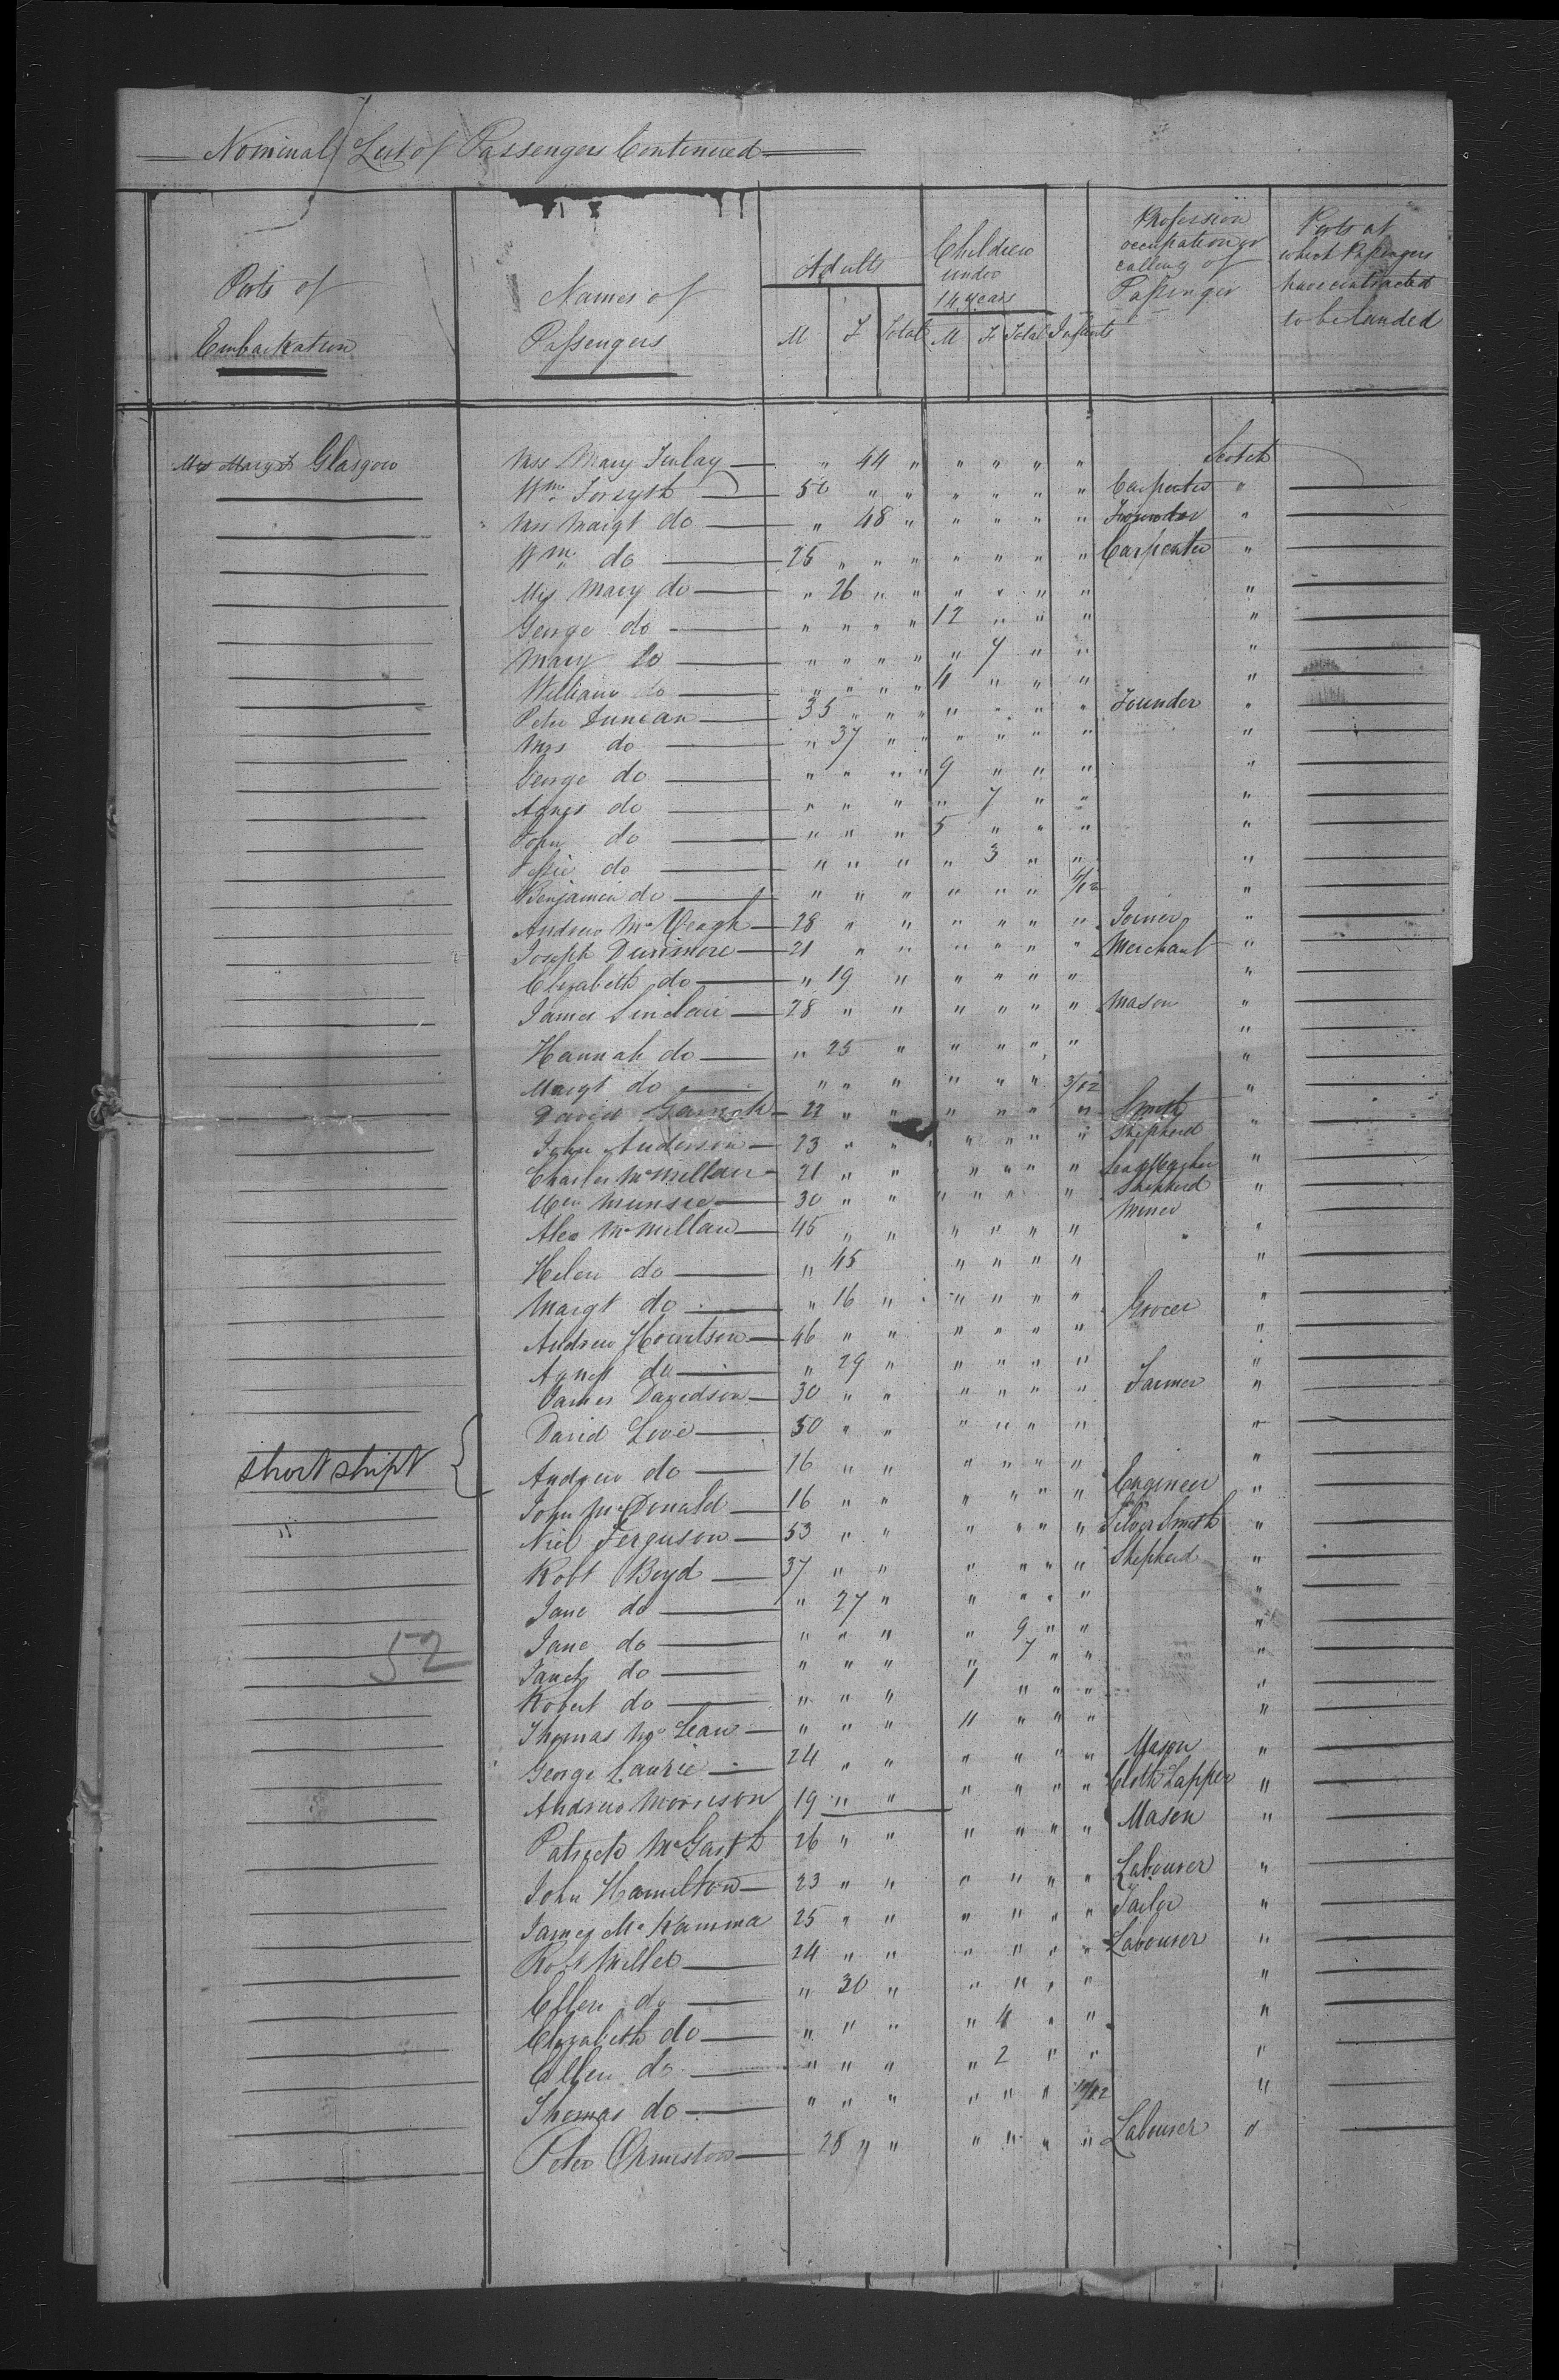 Nominal List of Passengers Continued
Ports of Embarkation
Names of Passengers
Adults
M F Total
Children under 14 years
M F Total Infants
Profession occupation or calling of Passenger
Ports at which Passengers have contracted to be landed
Glasgow Mrs Mary Finlay " 44 " " " " " Scotch
Wm Forsyth 50 " " " " " " Carpenter "
Mrs Margt do " 48 " " " " " Founder "
Wm do 25 " " " " " " " Carpenter "
Miss Mary do " 26 " " " " " " "
George do " " " " 12 " " " "
Mary do " " " " " 7 " " "
William do " " " " 4 " " " "
Peter Duncan 35 " " " " " " " Founder "
Mrs do " 37 " " " " " " "
George do " " " " 9 " " " "
Agnes do " " " " 7 " " "
John do " " " 5 " " " "
Jessie do " " " " 3 " " "
Benjamin do " " " " " " /12 "
Andrew Mc Veagh 28 " " " " " " Joiner "
Joseph Dunsmore 21 " " " " " " Merchant "
Elizabeth do " 19 " " " " " "
James Sinclair 28 " " " " " " Mason "
Hannah do " 25 " " " " " "
Margt do " " " " " " 3/12 "
David 22 " " " " " " Smith "
John Anderson 23 " " " " " " Shepherd "
Charles McMillan 21 " " " " " " "
Munsie 30 " " " " " " Shepherd "
Alex McMillan 45 " " " " " " Miner "
Helen do " 45 " " " " "
Margt do " 16 " " " " " "
Andrew Howitson 46 " " " " " " Grocer "
Agness do " 29 " " " " " "
James Davidson 30 " " " " " " Farmer "
David Love 50 " " " " " " "
short shipt Andrew do 16 " " " " " " "
John McDonald 16 " " " " " " Engineer "
" Niel Ferguson 53 " " " " " " Silver Smith "
Robt Boyd 37 " " " " " " Shepherd "
Jane do " 27 " " " " " "
Jane do " " " " 9 " " "
52
Janet do " " " " 7 " " "
Robert do " " " 1 " " " "
Thomas Mc Lean " " " 11 " " " "
George Laurie 24 " " " " " " Mason "
Andrew Morrison 19 " " " " " " Cloth Lapper "
Patrick McGarth 26 " " " " " " Mason "
John Hamilton 23 " " " " " " Labourer "
James Mc Kamma 25 " " " " " " Tailor "
Robt Miller 24 " " " " " " Labourer "
Ellen do " 30 " " " " " "
Elizabeth do " " " " 4 " " "
Ellen do " " " " 2 " " "
Thomas do " " " " " " /12 "
Peter Ormiston 28 " " " " " " Labourer "